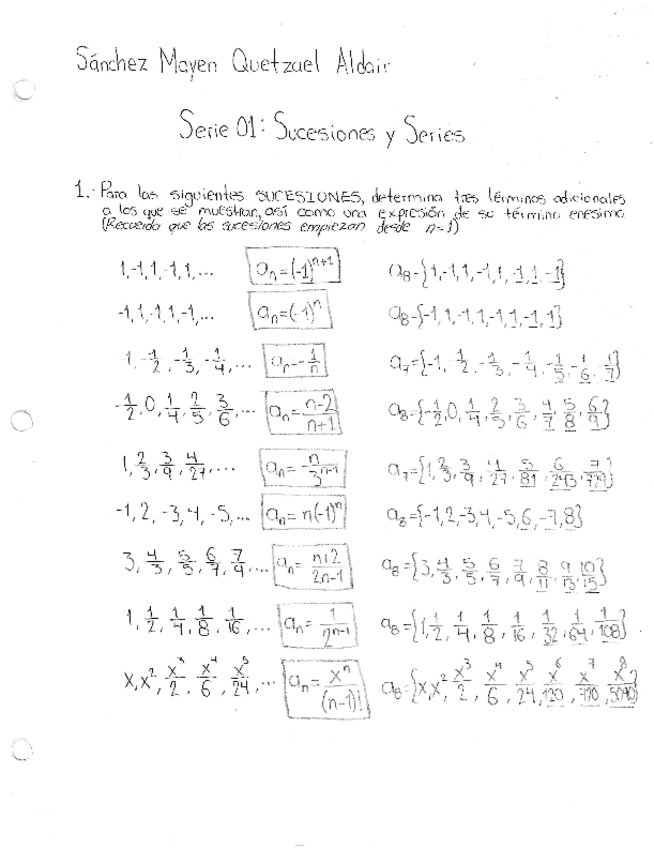 Sánchez Mayen Quetzael Aldair
Serie 01: Sucesiones y Series
1.- Para las siguientes SUCESIONES, determina tres términos adicionales
a los que se muestran, así como una expresión de su término enesimo
(Recuerda que las sucesiones empiezan desde n=1)
1,-1,1,-1,1,... aₙ=(-1)ⁿ⁺¹ a₈={1,-1,1,-1,1,-1,1,-1}
-1,1,-1,1,-1,... aₙ=(-1)ⁿ a₈={-1,1,-1,1,-1,1,-1,1}
1,-1/2,-1/3,-1/4,... aₙ=-1/n a₇={-1,-1/2,-1/3,-1/4,-1/5,-1/6,-1/7}
-1/2,0,1/4,2/5,3/6,... aₙ=(n-2)/(n+1) a₈={-1/2,0,1/4,2/5,3/6,4/7,5/8,6/9}
1,2/3,3/9,4/27,... aₙ=n/3ⁿ⁻¹ a₇={1,2/3,3/9,4/27,5/81,6/243,7/729}
-1,2,-3,4,-5,... aₙ=n(-1)ⁿ a₈={-1,2,-3,4,-5,6,-7,8}
3,4/3,5/5,6/7,7/9,... aₙ=(n+2)/(2n-1) a₈={3,4/3,5/5,6/7,7/9,8/11,9/13,10/15}
1,1/2,1/4,1/8,1/16,... aₙ=1/2ⁿ⁻¹ a₈={1,1/2,1/4,1/8,1/16,1/32,1/64,1/108}
x,x²,x³/2,x⁴/6,x⁵/24,... aₙ=xⁿ/(n-1)! a₈={x,x²,x³/2,x⁴/6,x⁵/24,x⁶/120,x⁷/720,x⁸/5040}